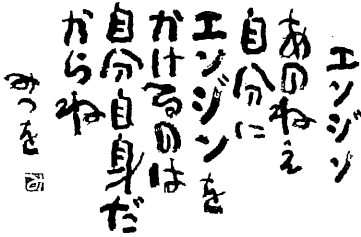 エンジン
あのねえ
自分に
エンジンを
かけるのは
自分自身だ
からね
みつを